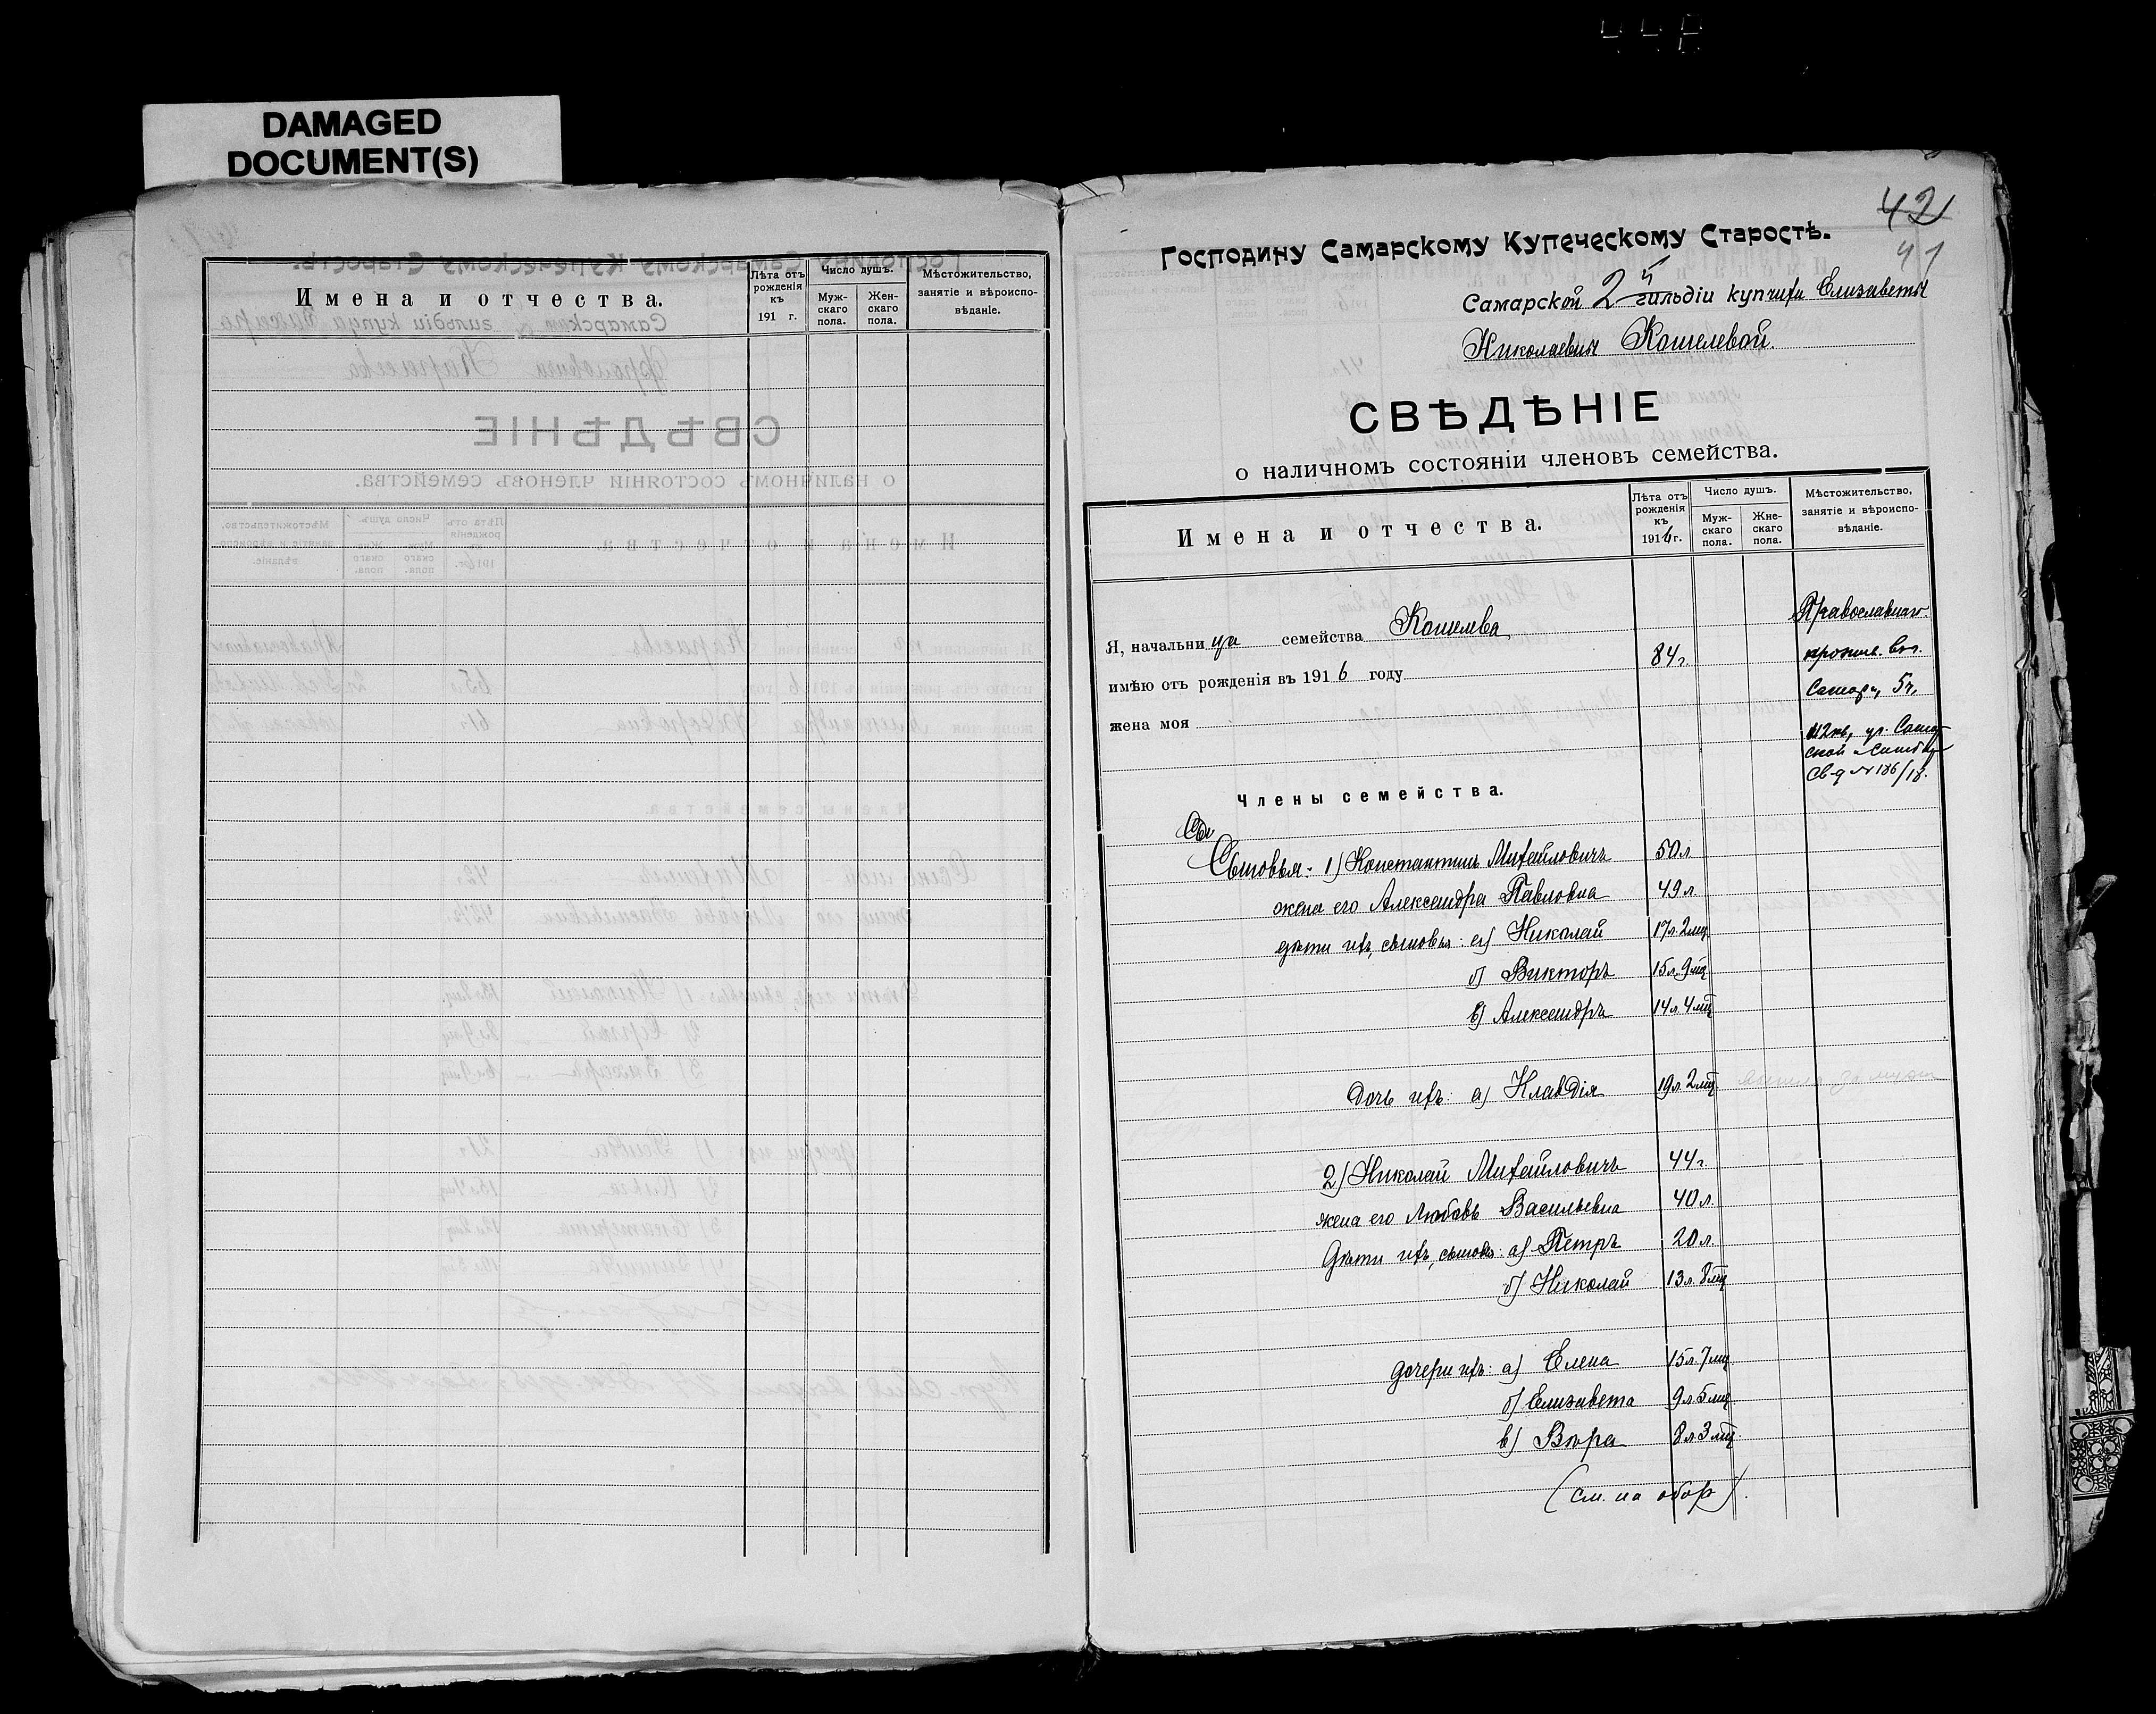 DAMAGED
DOCUMENT(S)
Имена и отчества.
Лѣта отъ рожденія къ 191 г.
Число душъ.
Муж-скаго пола.
Жен-скаго пола.
Мѣстожительство, занятіе и вѣроиспо-вѣданіе.
42
41
Господину Самарскому Купеческому Старостѣ.
Самарской 2й гильдіи купчихи Елизаветы
Николаевны Кошелевой.
СВѢДѢНІЕ
о наличномъ состояніи членовъ семейства.
Имена и отчества.
Лѣта отъ рожденія къ 1916 г.
Число душъ.
Муж-скаго пола.
Жне-скаго пола.
Мѣстожительство, занятіе и вѣроиспо-вѣданіе.
Я, начальница семейства Кошелева
имѣю отъ рожденія въ 1916 году 84 г.
жена моя
Православнаго
прожив. въ г.
Самарѣ, 5 ч.
112 кв, уг. Самар
ской и Симбир
св-д № 186/18.
Члены семейства.
Сы
Сыновья: 1) Константинъ Михайловичъ 50 л.
жена его Александра Павловна 49 л.
дѣти ихъ, сыновья: а) Николай 17 л. 2 мц.
б) Викторъ 15 л. 9 мц.
в) Александръ 14 л. 4 мц.
дочь ихъ: а) Клавдія 19 л. 2 мц.
2) Николай Михайловичъ 44 г.
жена его Любовь Васильевна 40 л.
Дѣти ихъ, сыновья: а) Петръ 20 л.
б) Николай 13 л. 8 мц.
дочери ихъ: а) Елена 15 л. 7 мц.
б) Елизавета 9 л. 5 мц.
в) Вѣра 8 л. 3 мц.
(см. на обор.)